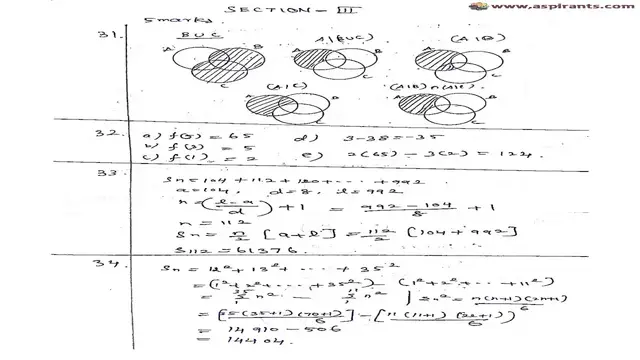 www.aspirants.com
SECTION - III
5 marks.
31. BUC A|(BUC) (A|B)
A B C A B C A B C
(A|C) (A|B)n(A|C)
A B C A B C
32. a) f(5) = 65 d) 3-38 = -35
b) f(3) = 5 e) 2(65) - 3(2) = 124
c) f(1) = 2
33. Sn = 104 + 112 + 120 + ... + 992
a = 104, d = 8, l = 992
n = (l-a/d) + 1 = 992 - 104/8 + 1
n = 112
Sn = n/2 [a+l] = 112/2 [104 + 992]
S112 = 61376
34. Sn = 12² + 13² + ... + 35²
= (1² + 2² + ... + 35²) - (1² + 2² + ... + 11²)
= 35 Σ 1 n² - 11 Σ 1 n² | Sn² = n(n+1)(2n+1)/6
= [35(35+1)(70+1)/6] - [11(11+1)(22+1)/6]
= 14910 - 506
= 14404.